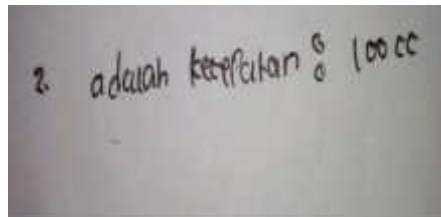 2. adalah kecepatan : 100 cc